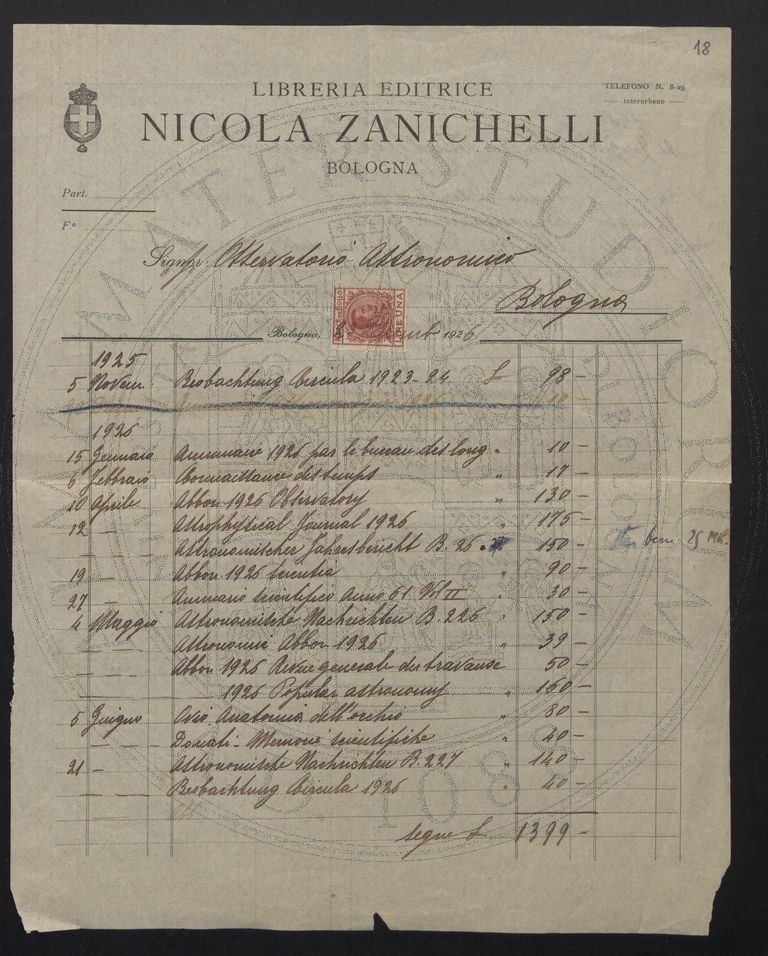 18
LIBRERIA EDITRICE
TELEFONO N. 8-23
interurbano
NICOLA ZANICHELLI
BOLOGNA
Part.
Fo
Osservatorio Astronomico
Bologna
LIRE UNA
Bologna, 1926
1925
5 Novem Beobachtung Circula 1923-24 £ 98 -
1926
15 Gennaio Annuaire 1926 par le bureau des long " 10 -
6 Febbraio Connaissance des temps " 17 -
10 Aprile Abbon 1926 Observatory " 130 -
12 - Astrophysical Journal 1926 " 175 -
- - Astronomischer Jahresbericht B. 26 150 - bene 25 Mk.
19 - Abbon 1926 Scientia " 90 -
27 - Annuario scientifico Anno 61 Vol II " 30 -
4 Maggio Astronomische Nachrichten B. 226 " 150 -
- - Astronomie Abbon 1926 " 39 -
- - Abbon 1926 Revue generale des travaux 50 -
- - 1926 Popular astronomy " 160 -
5 Giugno Ovio Anatomia dell'occhio " 80 -
- - Donati - Memorie scientifiche " 40 -
21 - Astronomische Nachrichten B. 227 " 140 -
- - Beobachtung Circula 1926 " 40 -
segue £ 1399 -
ALMA MATER STUDIORUM
A.D. 1088